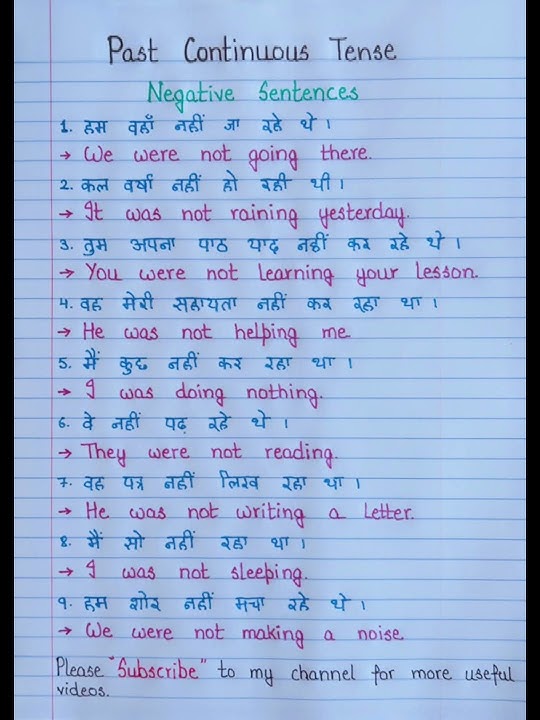 Past Continuous Tense
Negative Sentences
1. हम वहाँ नहीं जा रहे थे ।
→ We were not going there.
2. कल वर्षा नहीं हो रही थी ।
→ It was not raining yesterday.
3. तुम अपना पाठ याद नहीं कर रहे थे ।
→ You were not learning your lesson.
4. वह मेरी सहायता नहीं कर रहा था ।
→ He was not helping me
5. मैं कुछ नहीं कर रहा था ।
→ I was doing nothing.
6. वे नहीं पढ़ रहे थे ।
→ They were not reading.
7. वह पत्र नहीं लिख रहा था ।
→ He was not writing a letter.
8. मैं सो नहीं रहा था ।
→ I was not sleeping.
9. हम शोर नहीं मचा रहे थे ।
→ We were not making a noise
Please "Subscribe" to my channel for more useful
videos.